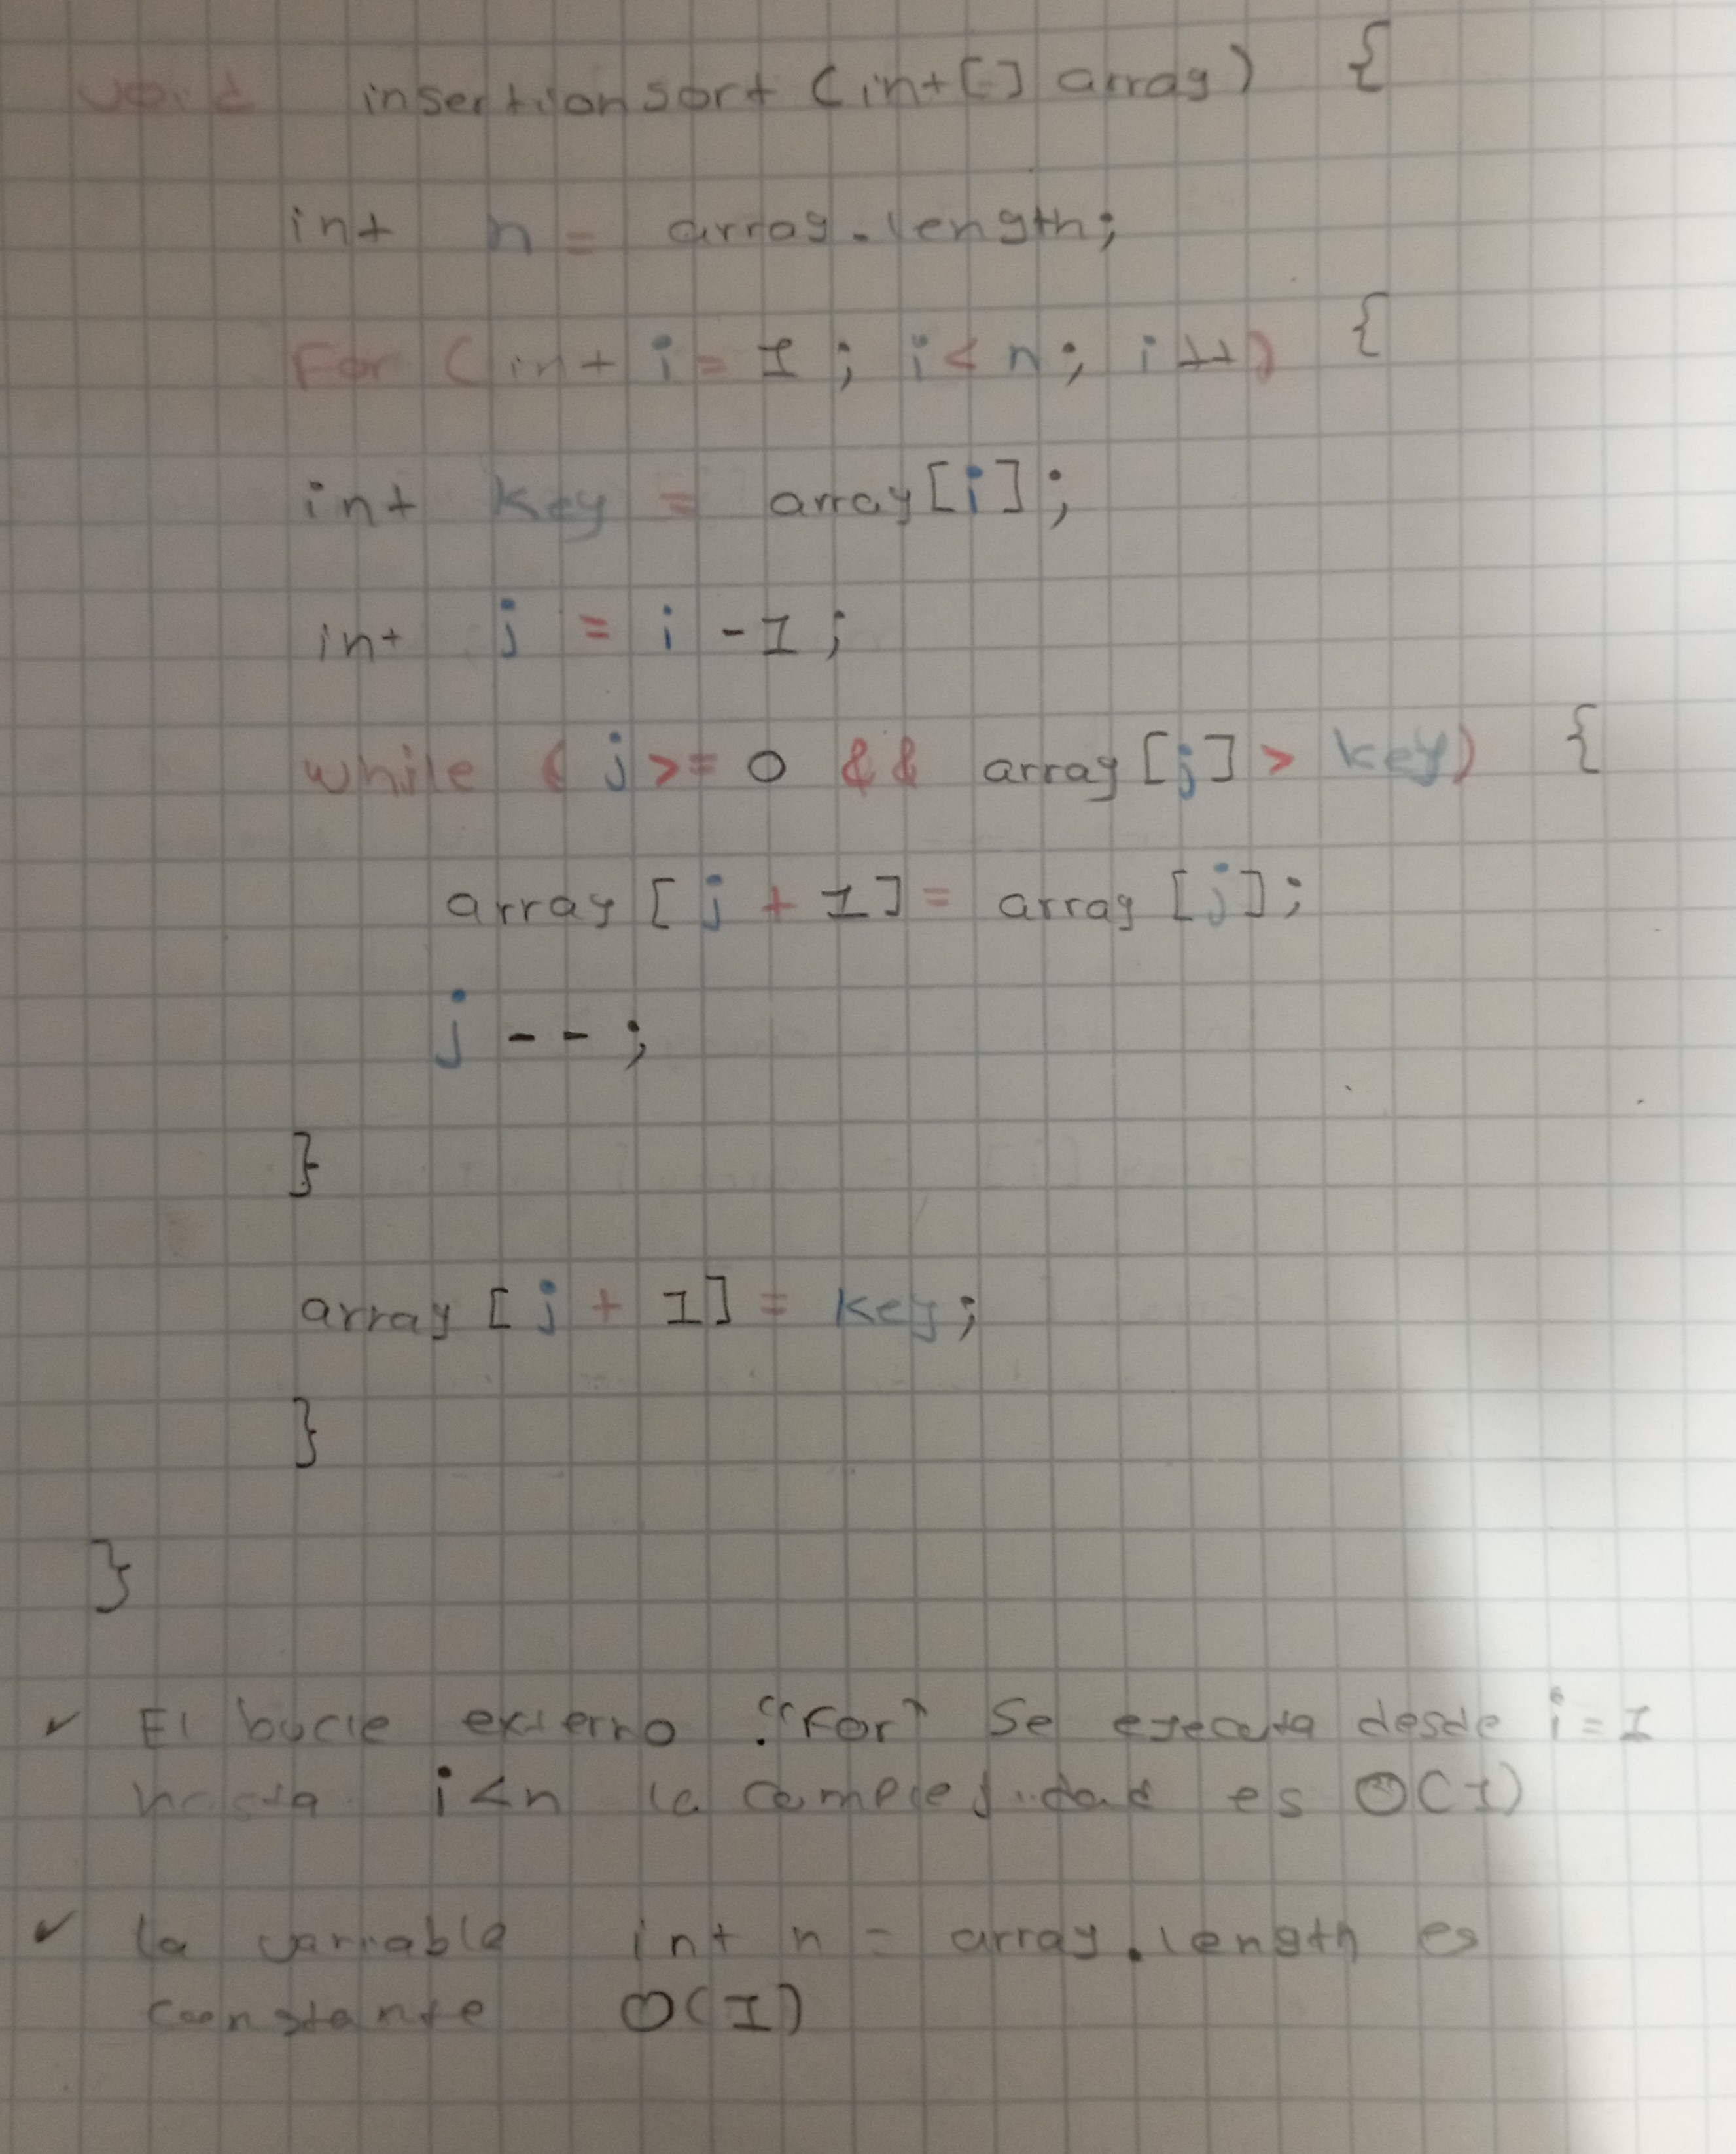 void insertionsort (int[] array) {
int n = array.length;
For (int i = 1; i < n; i++) {
int key = array[i];
int j = i - 1;
while (j >= 0 && array[j] > key) {
array[j + 1] = array[j];
j--;
}
array[j + 1] = key;
}
}
✓ El bucle externo "For" se ejecuta desde i = 1
hasta i < n la complejidad es O(1)
✓ la variable int n = array.length es
constante O(1)